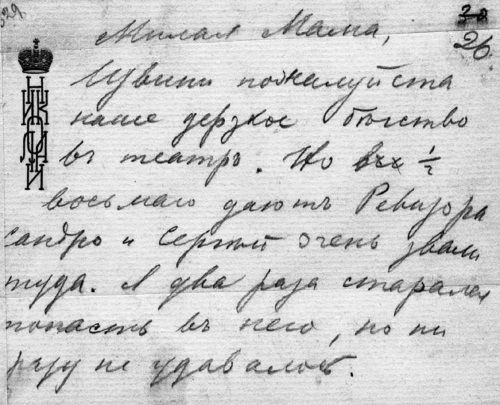 329.
38
26
Милая Мама,
Извини пожалуйста
наше дерзкое бѣгство
въ театръ. Но въ ½
восьмаго даютъ Ревизора
Сандро и Сергѣй очень звали
туда. Я два раза старался
попасть въ него, но ни
разу не удавалось.